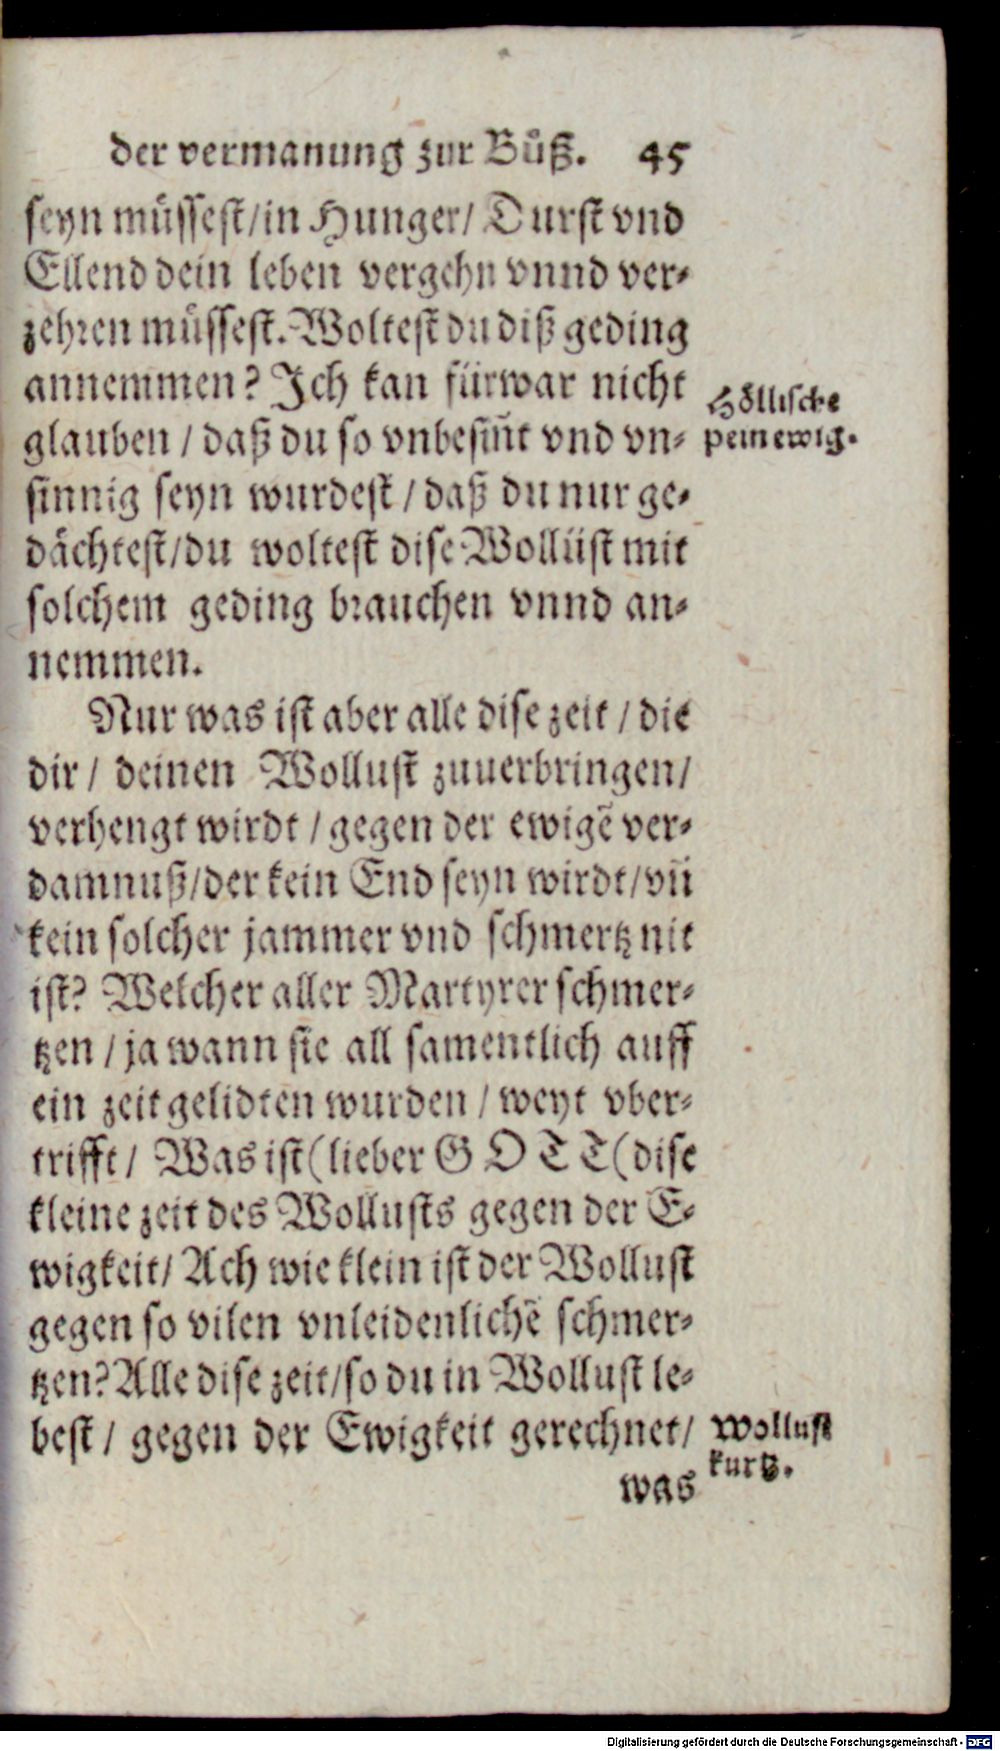 der vermanung zur Bůß. 45
seyn müssest/in Hunger/ Durst vnd
Ellend dein leben vergehn vnnd ver-
zehren müssest. Woltest du diß geding
annemmen? Ich kan fürwar nicht
Höllische
glauben / daß du so vnbesiñt vnd vn-
pein ewig.
sinnig seyn wurdest / daß du nur ge-
dächtest/du woltest dise Wollüst mit
solchem geding brauchen vnnd an-
nemmen.
Nur was ist aber alle dise zeit / die
dir / deinen Wollust zuuerbringen/
verhengt wirdt / gegen der ewigẽ ver-
damnuß/der kein End seyn wirdt/vñ
kein solcher jammer vnd schmertz nit
ist? Welcher aller Martyrer schmer-
tzen / ja wann sie all samentlich auff
ein zeit gelidten wurden / weyt vber-
trifft/ Was ist(lieber GOTT(dise
kleine zeit des Wollusts gegen der E-
wigkeit/ Ach wie klein ist der Wollust
gegen so vilen vnleidenlichẽ schmer-
tzen? Alle dise zeit/so du in Wollust le-
best / gegen der Ewigkeit gerechnet/
Wollust
kurtz.
was
Digitalisierung gefördert durch die Deutsche Forschungsgemeinschaft - DFG